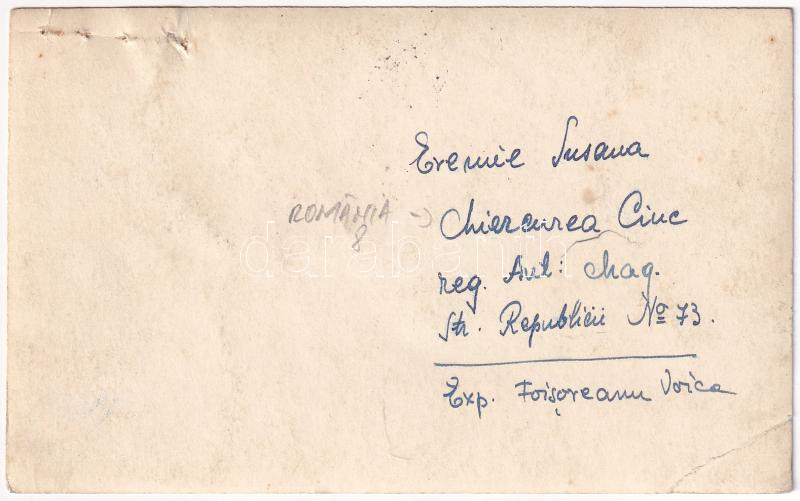 Eremie Susana
ROMÂNIA →
8
Miercurea Ciuc
reg. Aut: Mag.
Str. Republicii No 73.
Exp. Foișoreanu Voica
darabanth